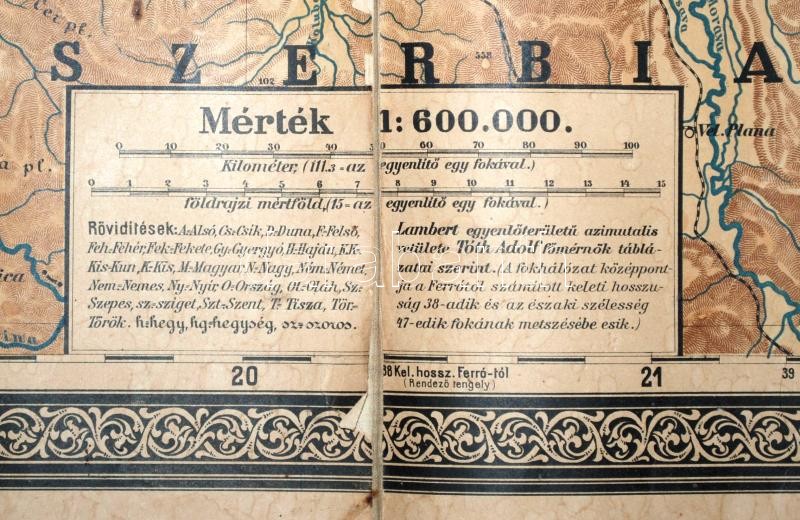 Čer pl.
Kolubara
SZERBIA
102
558
Mérték 1: 600.000.
0 10 20 30 40 50 60 70 80 90 100
Kilométer, (111.3 = az egyenlítő egy fokával.)
0 1 2 3 4 5 6 7 8 9 10 11 12 13 14 15
földrajzi mértföld, (15 = az egyenlítő egy fokával.)
Rövidítések: A.=Alsó, Cs.=Csík, D.=Duna, F.=Felső,
Feh.=Fehér, Fek.=Fekete, Gy.=Gyergyó, H.=Hajdu, K.K.=
Kis-Kun, K.=Kis, M.=Magyar, N.=Nagy, Ném.=Német,
Nem.=Nemes, Ny.=Nyír, O.=Ország, Ol.=Oláh, Sz.=
Szepes, sz.=sziget, Szt.=Szent, T.=Tisza, Tör.=
Török. h.=hegy, hg.=hegység, sz.=szoros.
Lambert egyenlőterületű azimutalis
vetülete Tóth Adolf főmérnök táblá-
zatai szerint. (A fokhálózat középpont-
ja a Ferrótól számított keleti hosszu-
ság 38-adik és az északi szélesség
47-edik fokának metszésébe esik.)
Vel. Plana
a pl.
ica
20
38 Kel. hossz. Ferró-tól
(Rendező tengely)
21
39